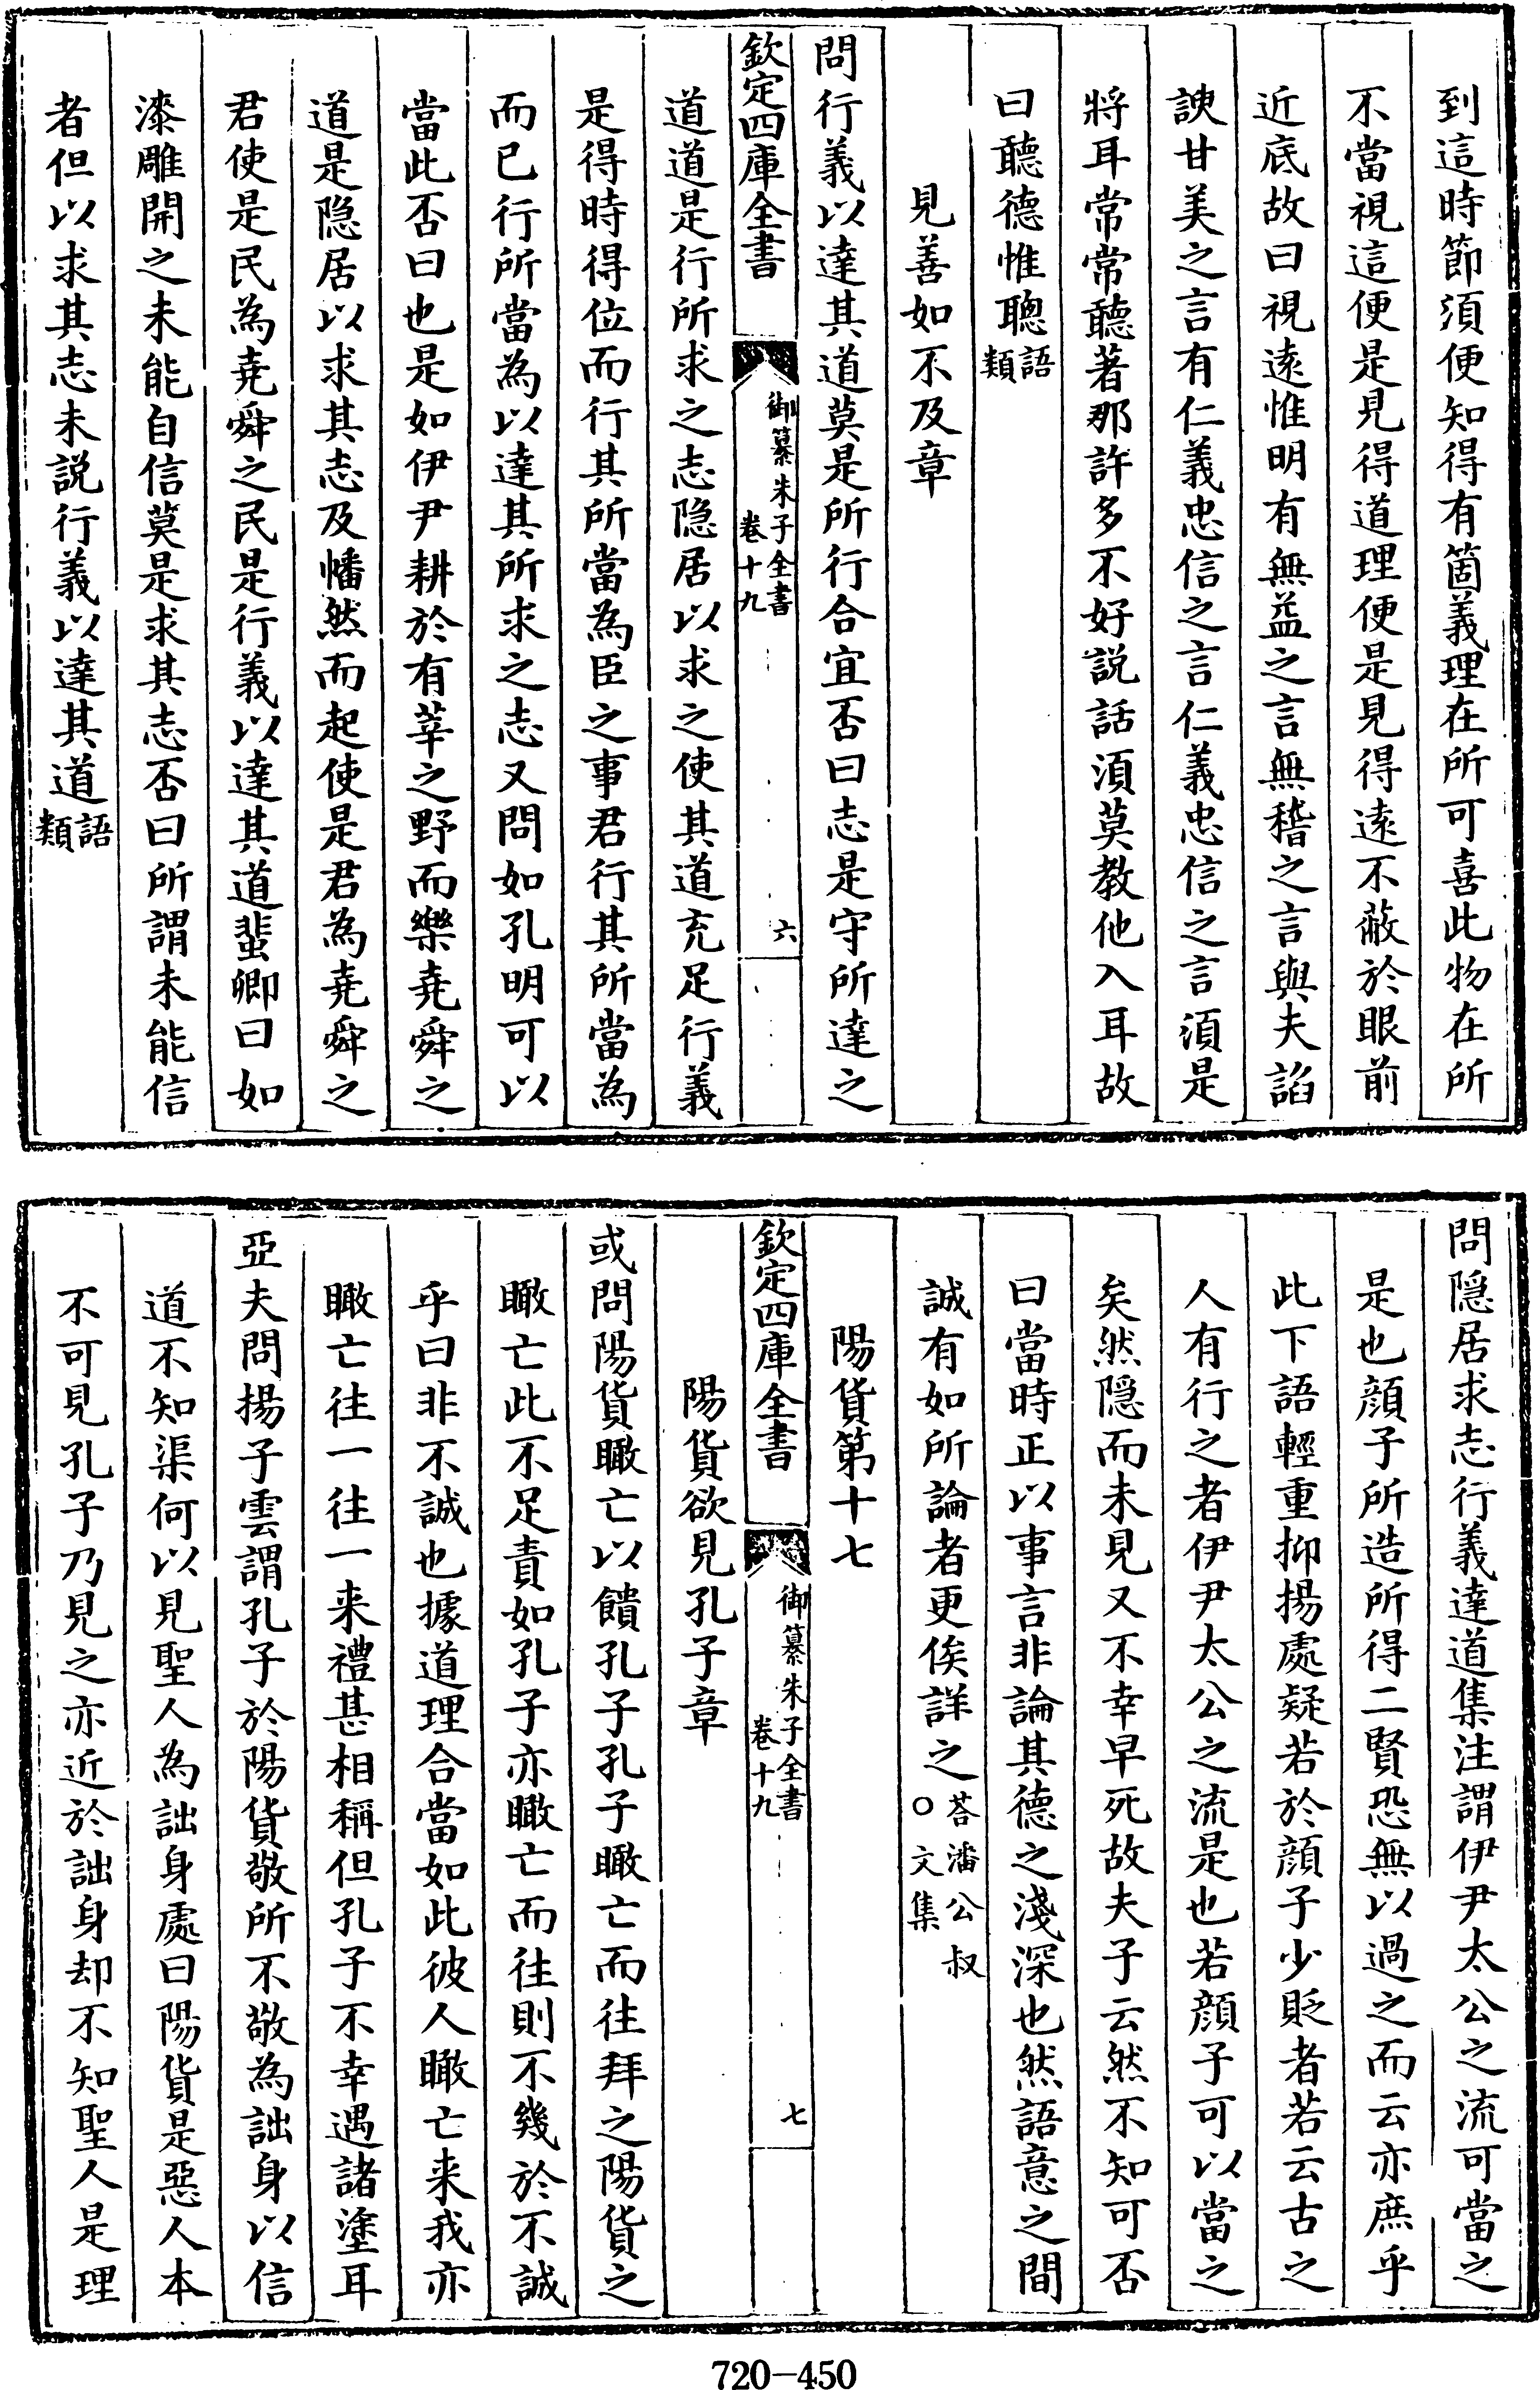 到這時節須便知得有箇義理在所可喜此物在所
不當視這便是見得道理便是見得逺不蔽於眼前
近底故曰視逺惟明有無益之言無稽之言與夫諂
諛甘美之言有仁義忠信之言仁義忠信之言須是
將耳常常聽著那許多不好説話須莫教他入耳故
曰聽德惟聰語類
見善如不及章
問行義以達其道莫是所行合宜否曰志是守所達之
欽定四庫全書
御纂朱子全書
卷十九
六
道道是行所求之志隠居以求之使其道充足行義
是得時得位而行其所當為臣之事君行其所當為
而已行所當為以達其所求之志又問如孔明可以
當此否曰也是如伊尹耕於有莘之野而樂堯舜之
道是隠居以求其志及幡然而起使是君為堯舜之
君使是民為堯舜之民是行義以達其道蜚卿曰如
漆雕開之未能自信莫是求其志否曰所謂未能信
者但以求其志未説行義以達其道語類
問隠居求志行義達道集注謂伊尹太公之流可當之
是也顔子所造所得二賢恐無以過之而云亦庶乎
此下語輕重抑揚處疑若於顔子少貶者若云古之
人有行之者伊尹太公之流是也若顔子可以當之
矣然隠而未見又不幸早死故夫子云然不知可否
曰當時正以事言非論其德之淺深也然語意之間
誠有如所論者更俟詳之荅潘公叔○文集
陽貨第十七
欽定四庫全書
御纂朱子全書
卷十九
七
陽貨欲見孔子章
或問陽貨瞰亡以饋孔子孔子瞰亡而往拜之陽貨之
瞰亡此不足責如孔子亦瞰亡而往則不幾於不誠
乎曰非不誠也據道理合當如此彼人瞰亡来我亦
瞰亡往一往一来禮甚相稱但孔子不幸遇諸塗耳
亞夫問揚子雲謂孔子於陽貨敬所不敬為詘身以信
道不知渠何以見聖人為詘身處曰陽貨是惡人本
不可見孔子乃見之亦近於詘身却不知聖人是理
720-450